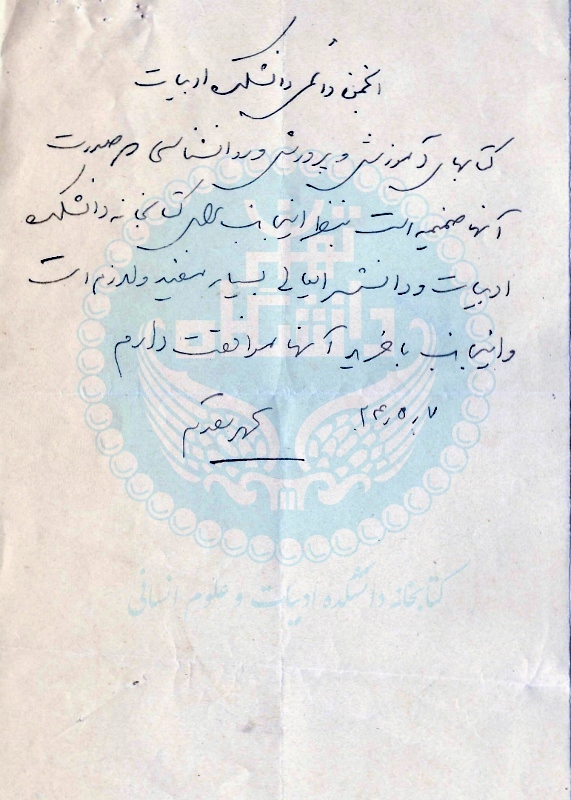 انجمن دائمی دانشکده ادبیات
کتابهای آموزش و پرورش و روانشناسی که صورت
آنها ضمیمه است بنظر اینجانب برای کتابخانه دانشکده
ادبیات و دانشسرایعالی بسیار مفید و لازم است
و اینجانب با خرید آنها موافقت دارم
۲۴٫۵٫۷
کتابخانه دانشکده ادبیات و علوم انسانی